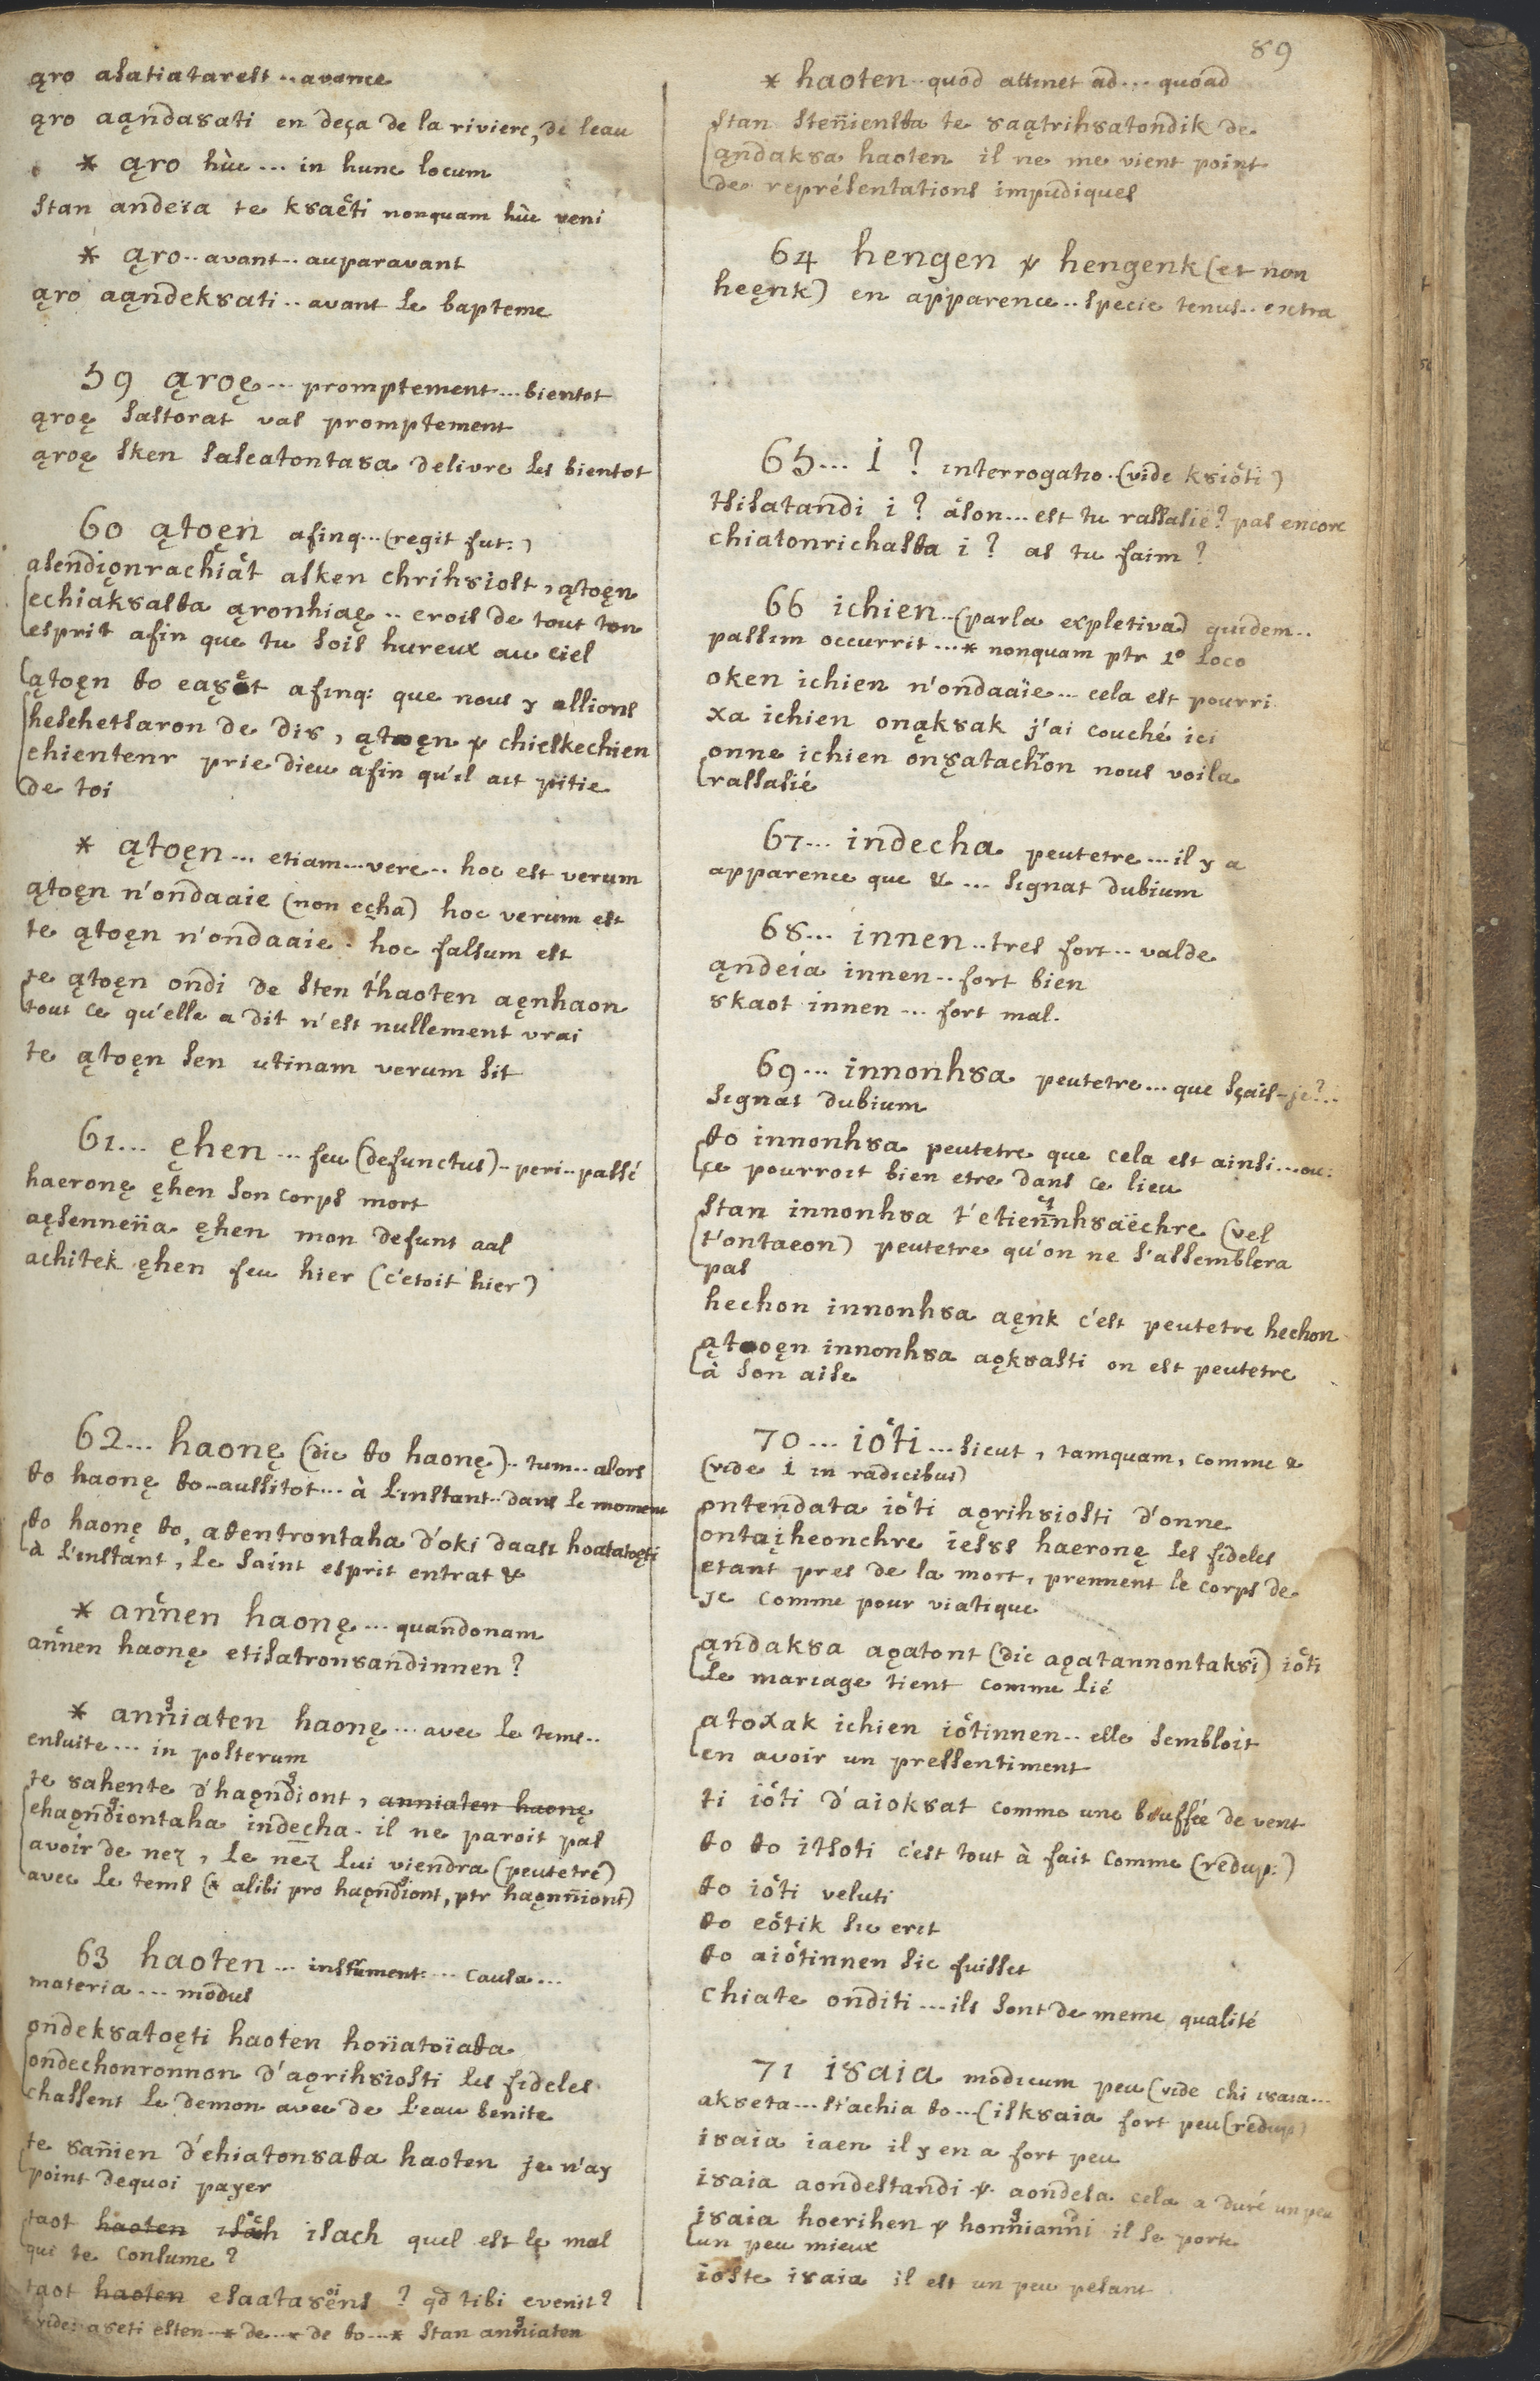 ąro asatiatarest .. avance
ąro aąndaȣati en deça de la riviere, de l'eau
* ąro hùc ... in hunc locum
stan andeïa te kȣaëti nonquam hùc veni
* ąro .. avant .. auparavant
ąro aąndekȣati .. avant le bapteme
59 ąroę ... promptement ... bientot
ąroę sastorat vas promptement
ąroę sken saseatontaȣa delivre les bientot
60 ątoęn afinq ... (regit fut:)
asendiǫnrachiät asken chrihȣiost, ątoęn
echiakȣasta ąronhiaę .. crois de tout ton
esprit afin que tu sois hureux au ciel
ątoęn ꝋo eaȣet afinq: que nous y allions
hesehetsaron de diȣ, ątoęn & chieskechien
chientenr prie dieu afin qu'il ait pitie
de toi
* ątoęn ... etiam ... vere .. hoc est verum
ątoęn n'ondaaie (non echa) hoc verum est
te ątoęn n'ondaaie . hoc falsum est
te ątoęn ondi de sten t'haoten aęnhaon
tout ce qu'elle a dit n'est nullement vrai
te ątoęn sen utinam verum sit
61 ... ęhen ... feu (defunctus) - peri .. passé
haeronę ęhen son corps mort
aęsenneïia ęhen mon defunt aal
achitek ęhen feu hier (c'etoit hier)
62 ... haonę (dic ꝋo haonę) .. tum .. alors
ꝋo haonę ꝋo - aussitot ... à l'instant .. dans le moment
ꝋo haonę ꝋo, aꝋentrontaha d'oki daast hoatatoęti
à l'instant, le saint esprit entrat &
* annen haonę ... quandonam
annen haonę etisatronȣandinnen ?
* anniaten haonę ... avec le tems ..
ensuite ... in posterum
te ȣahente d'haǫndiont, anniaten haonę
ehaǫndiontaha indecha . il ne paroit pas
avoir de nez, le nez lui viendra (peutetré)
avec le tems (* alibi pro haǫndiont, ptr haǫnniont)
63 haoten ... instument: ... causa ...
materia ... modus
ondekȣatoęti haoten honatoïaꝋa
ondechonronnon d'aǫrihȣiosti les fideles
chassent le demon avec de l'eau benite
te ȣanien d'ehiatonȣaꝋa haoten je n'ay
point dequoi payer
taot haoten isach isach quel est le mal
qui te consume ?
taot haoten esaataȣens ? qd tibi evenit ?
vide: aȣeti esten ... * de ... * de ꝋo ... * stan anniaten
89
* haoten .. quod attinet ad ... quoad
stan stenienstꝋa te ȣaątrihȣatondik de
ąndakȣa haoten il ne me vient point
de représentations impudiques
64 hengen & hengenk (et non
heęnk) en apparence .. specie tenus .. extra
65 ... i ? interrogatio . (vide kȣiöti)
tsisatandi i ? äson ... est tu rassasié ? pas encore
chiatonrichasꝋa i ? as tu faim ?
66 ichien .. (parla expletiva) quidem ..
passim occurrit ... * nonquam ptr 1º loco
oken ichien n'ondaaïe ... cela est pourri
xa ichien onąkȣak j'ai couché ici
onne ichien onȣatachon nous voila
rassasié
67 ... indecha peutetre ... il y a
apparence que & ... signat dubium
68 ... innen .. tres fort .. valde
ąndeia innen .. fort bien
ȣkaot innen ... fort mal.
69 ... innonhȣa peutetre ... que sçais-je ? ..
signat dubium
ꝋo innonhȣa peutetre que cela est ainsi ... ou:
ce pourroit bien etre dans ce lieu
stan innonhȣa t'etiennhȣaëchre (vel
t'ontaeon) peutetre qu'on ne s'assemblera
pas
hechon innonhȣa aęnk c'est peutetre hechon
ątoęn innonhȣa aǫkȣasti on est peutetre
à son aise
70 ... iöti ... sicut, tamquam, comme &
(vide i in radicibus)
ontendata iöti aǫrihȣiosti d'onne
ontaiheonchre iesȣs haeronę les fideles
etant pres de la mort, prennent le corps de
je comme pour viatique
ąndakȣa aǫatont (dic aǫatannontakȣi) iöti
le mariage tient comme lié
atoxak ichien iötinnen .. elle sembloit
en avoir un pressentiment
ti iöti d'aiokȣat comme une bouffée de vent
ꝋo ꝋo itsoti c'est tout à fait comme (redup:)
ꝋo iöti veluti
ꝋo eötik sic erit
ꝋo aiötinnen sic fuisset
chiate onditi ... ils sont de meme qualité
71 iȣaia modicum peu (vide chi iȣaia ...
akȣeta ... st'achia ꝋo ... (iskȣaia fort peu (redup)
iȣaia iaen il y en a fort peu
iȣaia aondestandi & aondesa cela a duré un peu
iȣaia hoerihen & honnianni il se porte
un peu mieux
ioste iȣaia il est un peu pesant